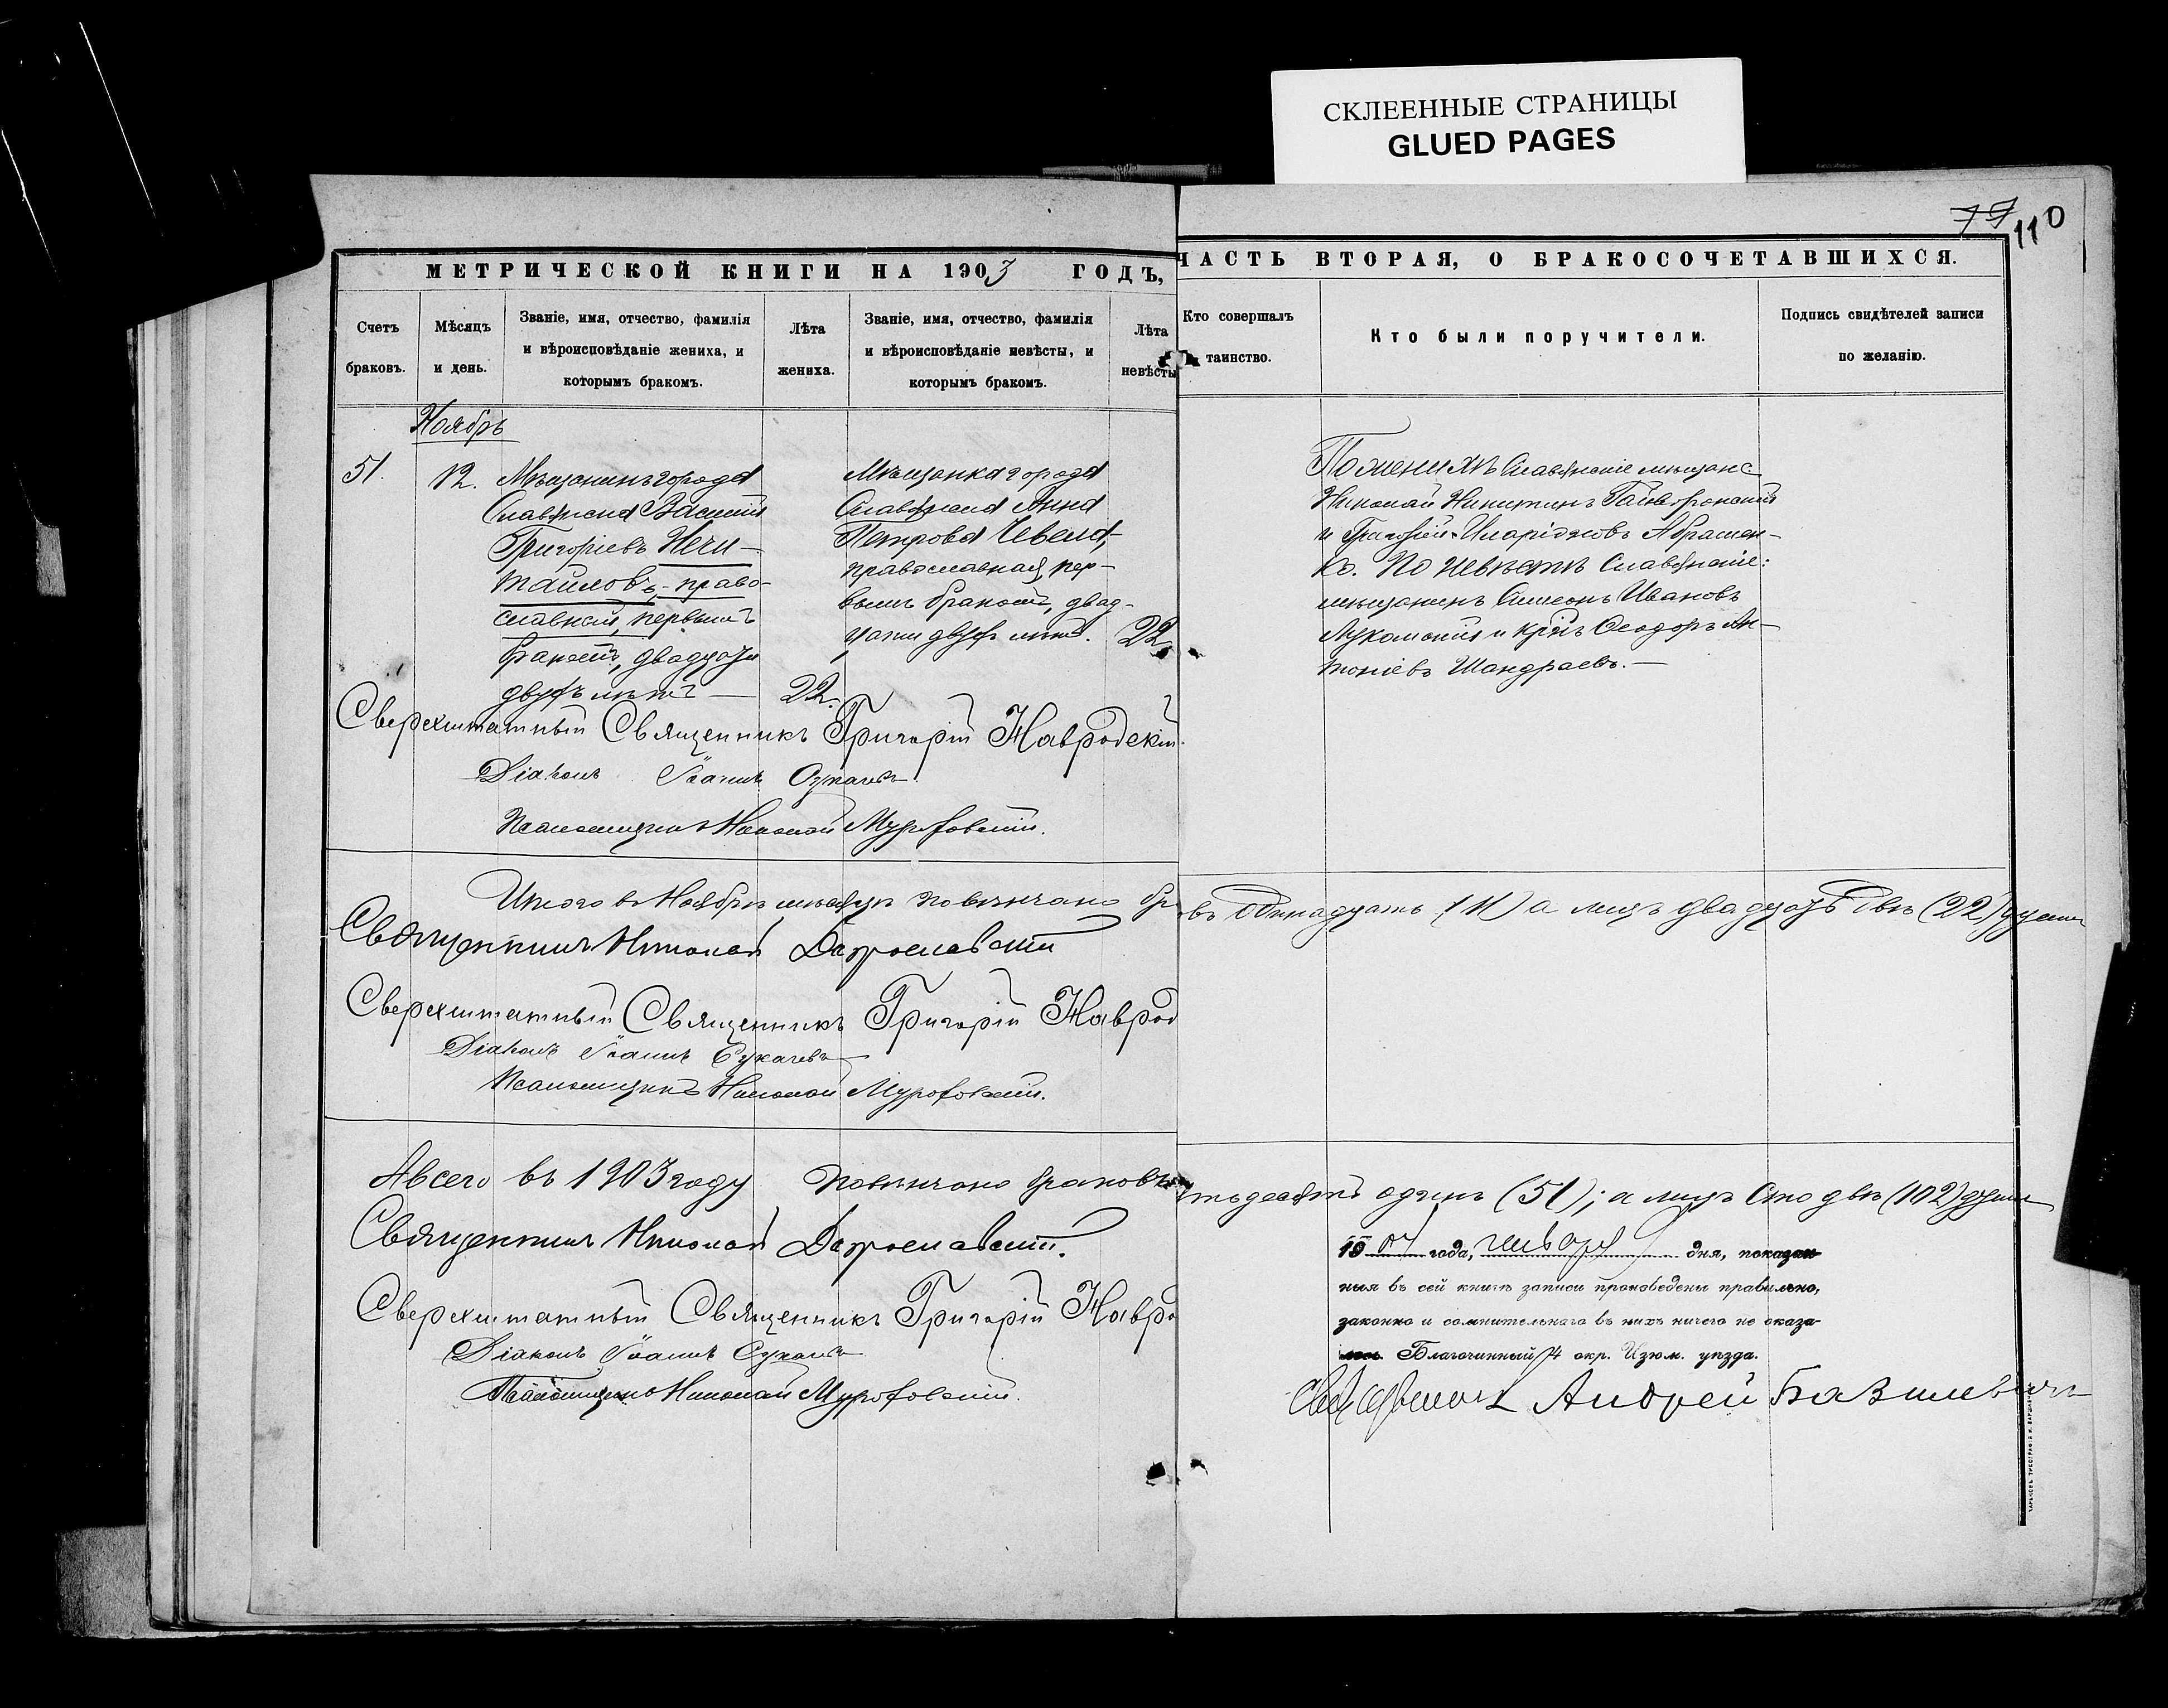 СКЛЕЕННЫЕ СТРАНИЦЫ
GLUED PAGES
77 110
МЕТРИЧЕСКОЙ КНИГИ НА 1903 ГОДЪ,
Счетъ браковъ.
Мѣсяцъ и день.
Званіе, имя, отчество, фамилія
и вѣроисповѣданіе жениха, и
которымъ бракомъ.
Лѣта жениха.
Званіе, имя, отчество, фамилія
и вѣроисповѣданіе невѣсты, и
которымъ бракомъ.
Лѣта невѣсты
Ноябрь
51.
12.
Мѣщанинъ города
Славянска Василій
Григоріевъ Нечи-
тайловъ, право-
славный, первымъ
бракомъ, двадцати
двухъ лѣтъ —
22.
Мѣщанка города
Славянска Анна
Петрова Чевела,
православная, пер-
вымъ бракомъ, двад-
цати двухъ лѣтъ.
22.
Сверхштатный Священникъ Григорій Навродскій.
Діаконъ Іоаннъ Сукачевъ
Псаломщикъ Николай Мураховскій.
Итого въ Ноябрѣ мѣсяцѣ повѣнчано бр
Священникъ Николай
Сверхштатный Священникъ Григорій Наврод
Діаконъ Іоаннъ Сукачевъ
Псаломщикъ Николай Мураховскій.
А всего въ 1903 году повѣнчано браковъ
Священникъ Николай
Сверхштатный Священникъ Григорій Навро
Діаконъ Іоаннъ Сукачевъ
Псаломщикъ Николай Мураховскій.
ЧАСТЬ ВТОРАЯ, О БРАКОСОЧЕТАВШИХСЯ.
Кто совершалъ таинство.
Кто были поручители.
Подпись свидѣтелей записи
по желанію.
По женихѣ Славянскіе мѣщане
Николай Никитинъ Гайворонскій
и Григорій Иларіоновъ Абрамен-
ко. По невѣстѣ Славянскіе:
мѣщанинъ Симеонъ Ивановъ
Лукомскій и кр-нъ Ѳеодоръ Ан-
тоніевъ Шандраевъ. —
въ Одинадцать (11) а лицъ двадцать двѣ (22) души
тьдесятъ одинъ (51); а лицъ Сто двѣ (102) души
1904 года, января 9 дня, показан-
ныя въ сей книгѣ записи произведены правильно,
законно и сомнительнаго въ нихъ ничего не оказа-
лось. Благочинный 4 окр. Изюм. уѣзда.
Священникъ Андрей Базилевичъ